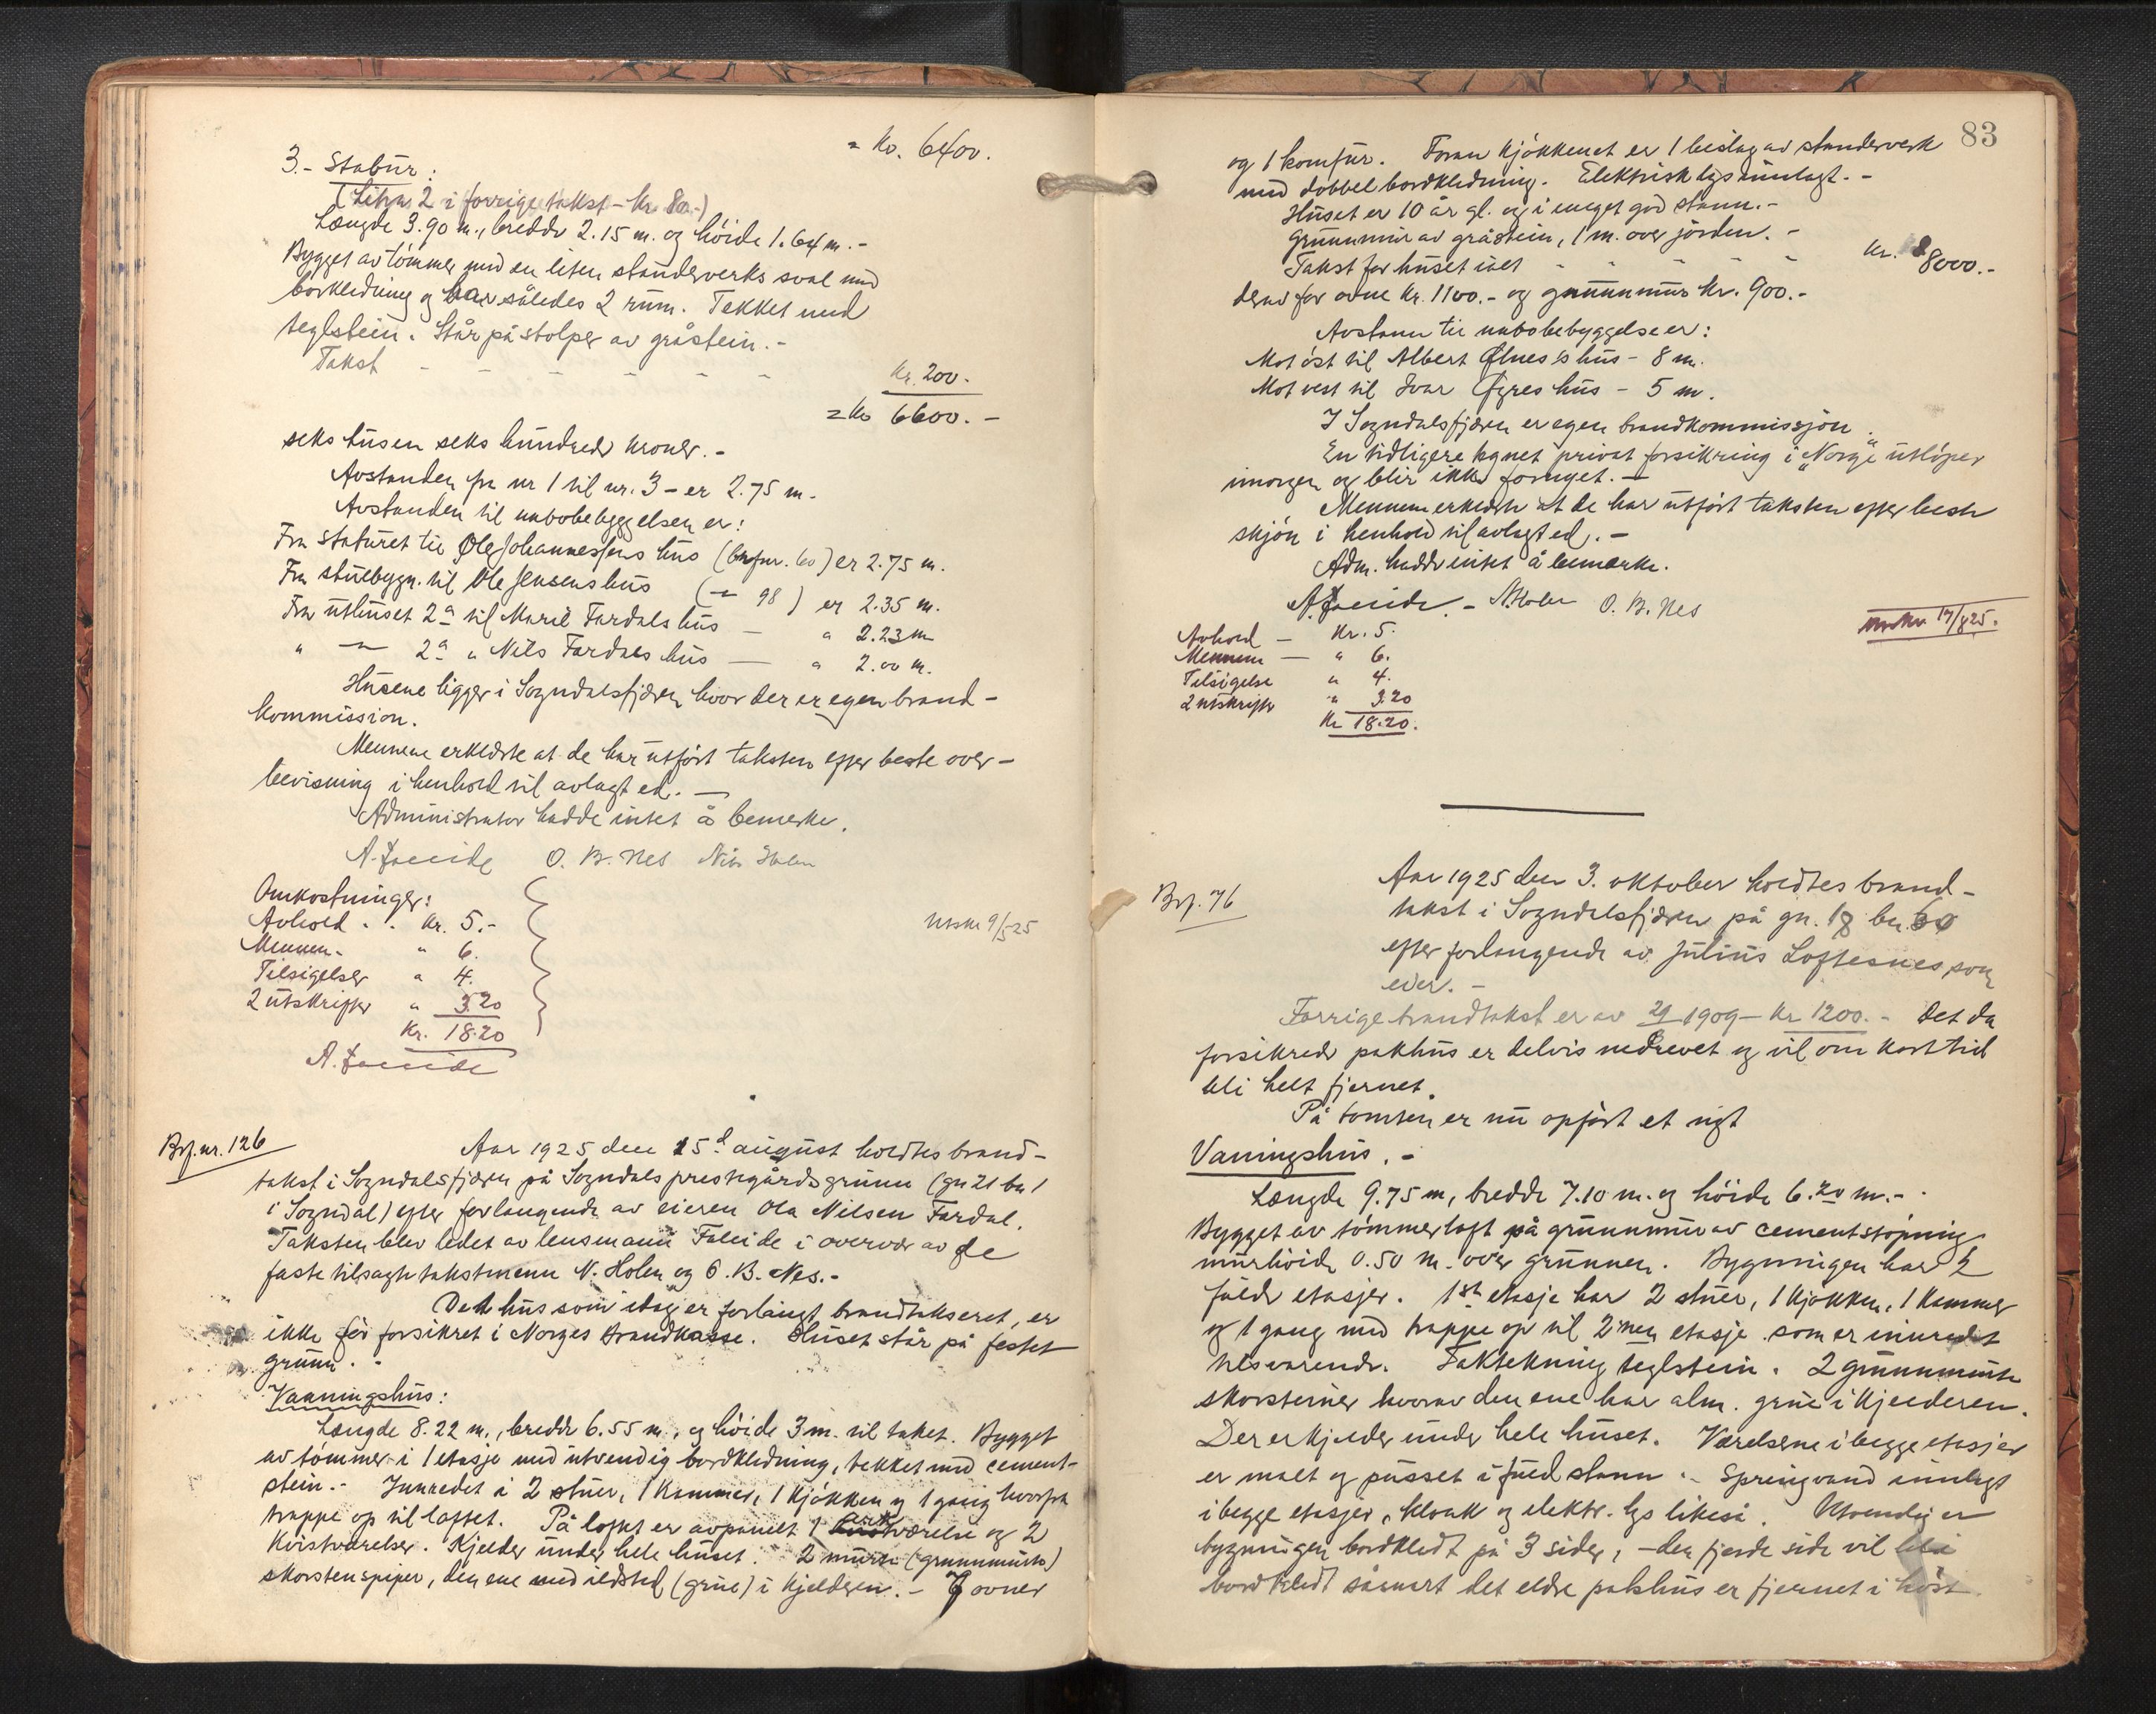 = Kr. 6400.
3.- Stabur:
(Litra 2 i forrige takst - kr. 80.-)
Længde 3.90 m., bredde 2.15 m. og høide 1.64 m.-
Bygget av tømmer med en liten standerverks sval med
bordkledning og har således 2 rum. Tekket med
teglstein. Står på stolper av gråstein.-
Takst - - - - - - Kr. 200.-
= Kr 6600.-
seks tusen seks hundrede kroner.-
Avstanden fra nr 1 til nr. 3 - er 2.75 m.
Avstanden til nabobebyggelsen er:
Fra staburet til Ole Johannessens hus (brpnr. 60) er 2.75 m.
Fra stuebygn. til Ole Jensens hus (— 98) er 2.35 m.
Fra uthuset 2a til Marie Fardals hus — " 2.23 m
" — 2a " Nils Fardals hus — " 2.00 m.
Husene ligger i Sogndalsfjæren hvor der er egen brand-
kommission.
Mennene erklærte at de har utført taksten efter beste over-
bevisning i henhold til avlagt ed. —
Administrator hadde intet å bemerke.
A. Faleide O. B. Nes Nils Holen
Omkostninger:
Avhold . . Kr. 5.-
Mennen. " 6.
Tilsigelser " 4.
2 utskrifter " 3.20
Kr. 18.20
A. Faleide
Utskr 9/5 25
Brf. nr. 126
Aar 1925 den 15d august holdtes brand-
takst i Sogndalsfjæren på Sogndals prestegårds grunn (gn 21 bn 1
i Sogndal) efter forlangende av eieren Ola Nilsen Fardal.
Taksten blev ledet av lensmann Faleide i overvær av de
faste tilsagte takstmenn N. Holen og O. B. Nes.-
Det hus som idag er forlangt brandtakseret, er
ikke før forsikret i Norges Brandkasse. Huset står på festet
grunn.-
Vaaningshus:
Længde 8.22 m., bredde 6.55 m., og høide 3 m. til taket. Bygget
av tømmer i 1 etasje med utvendig bordkledning, tekket med cement-
stein.- Innredet i 2 stuer, 1 kammer, 1 kjøkken og 1 gang hvorfra
trappe op til loftet. På loftet er avpanelt 1 værelse og 2
kvistværelser. Kjelder under hele huset. 2 murte (grunnmurte)
skorstenspiper, den ene med ildsted (grue) i kjelderen.- 7 ovner
83
og 1 komfur. Foran kjøkkenet er 1 beislag av standerverk
med dobbel bordkledning. Elektrisk lys innlagt.-
Huset er 10 år gl. og i meget god stann.-
Grunnmur av gråstein, 1 m. over jorden.-
Takst for huset ialt - - - - - Kr. 8000.-
derav for ovne Kr. 1100.- og grunnmur Kr. 900.-
Avstann til nabobebyggelse er:
Mot øst til Albert Ølnes's hus - 8 m.
Mot vest til Ivar Øyres hus - 5 m.
I Sogndalsfjæren er egen brandkommissjon.
En tidligere tegnet privat forsikring i "Norge" utløper
imorgen og blir ikke fornyet. —
Mennene erklærte at de har utført taksten efter beste
skjøn i henhold til avlagt ed.-
Adm. hadde intet å bemerke.
A. Faleide.- N. Holen O. B. Nes
Utskr 17/8 25.
Avhold — Kr. 5.
Mennene — " 6.
Tilsigelse " 4.
2 utskrifter " 3.20
Kr 18.20.
Brf. 76
Aar 1925 den 3. oktober holdtes brand-
takst i Sogndalsfjæren på gn. 18 bn. 30
efter forlangende av Julius Loftesnes som
eier.-
Forrige brandtakst er av 1909 - Kr 1200.- Det da
forsikrede pakhus er delvis nedrevet og vil om kort tid
bli helt fjernet.
På tomten er nu opført et nyt
Vaningshus.-
Længde 9.75 m, bredde 7.10 m. og høide 6.20 m.-
Bygget av tømmerloft på grunnmur av cementstøpning
murhøide 0.50 m. over grunnen. Bygningen har 2
fulde etasjer. 1ste etasje har 2 stuer, 1 kjøkken, 1 kammer
og 1 gang med trappe op til 2nen etasje som er innredet
tilsvarende. Taktekning teglstein. 2 grunnmurte
skorstener hvorav den ene har alm. grue i kjelderen.
Der er kjelder under hele huset. Værelsene i begge etasjer
er malt og pusset i fuld stann.- Springvand innlagt
i begge etasjer, kloak og elektr. lys likeså. Utvendig er
bygningen bordkledt på 3 sider, - den fjerde side vil bli
bordkledt såsnart det eldre pakhus er fjernet i høst.